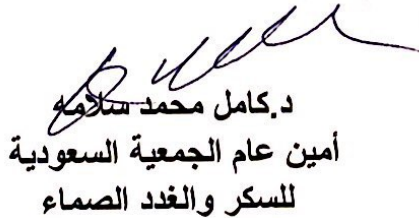 د.كامل محمد سلامه
أمين عام الجمعية السعودية
للسكر والغدد الصماء